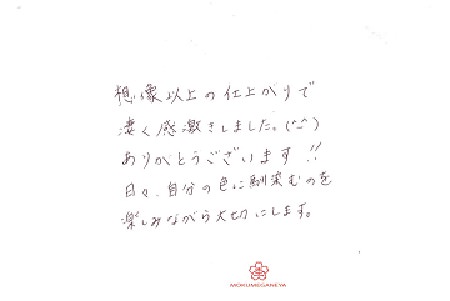 想像以上の仕上がりで
凄く感激しました。(^-^)
ありがとうございます!!
日々、自分の色に馴染むのを
楽しみながら大切にします。
MOKUMEGANEYA